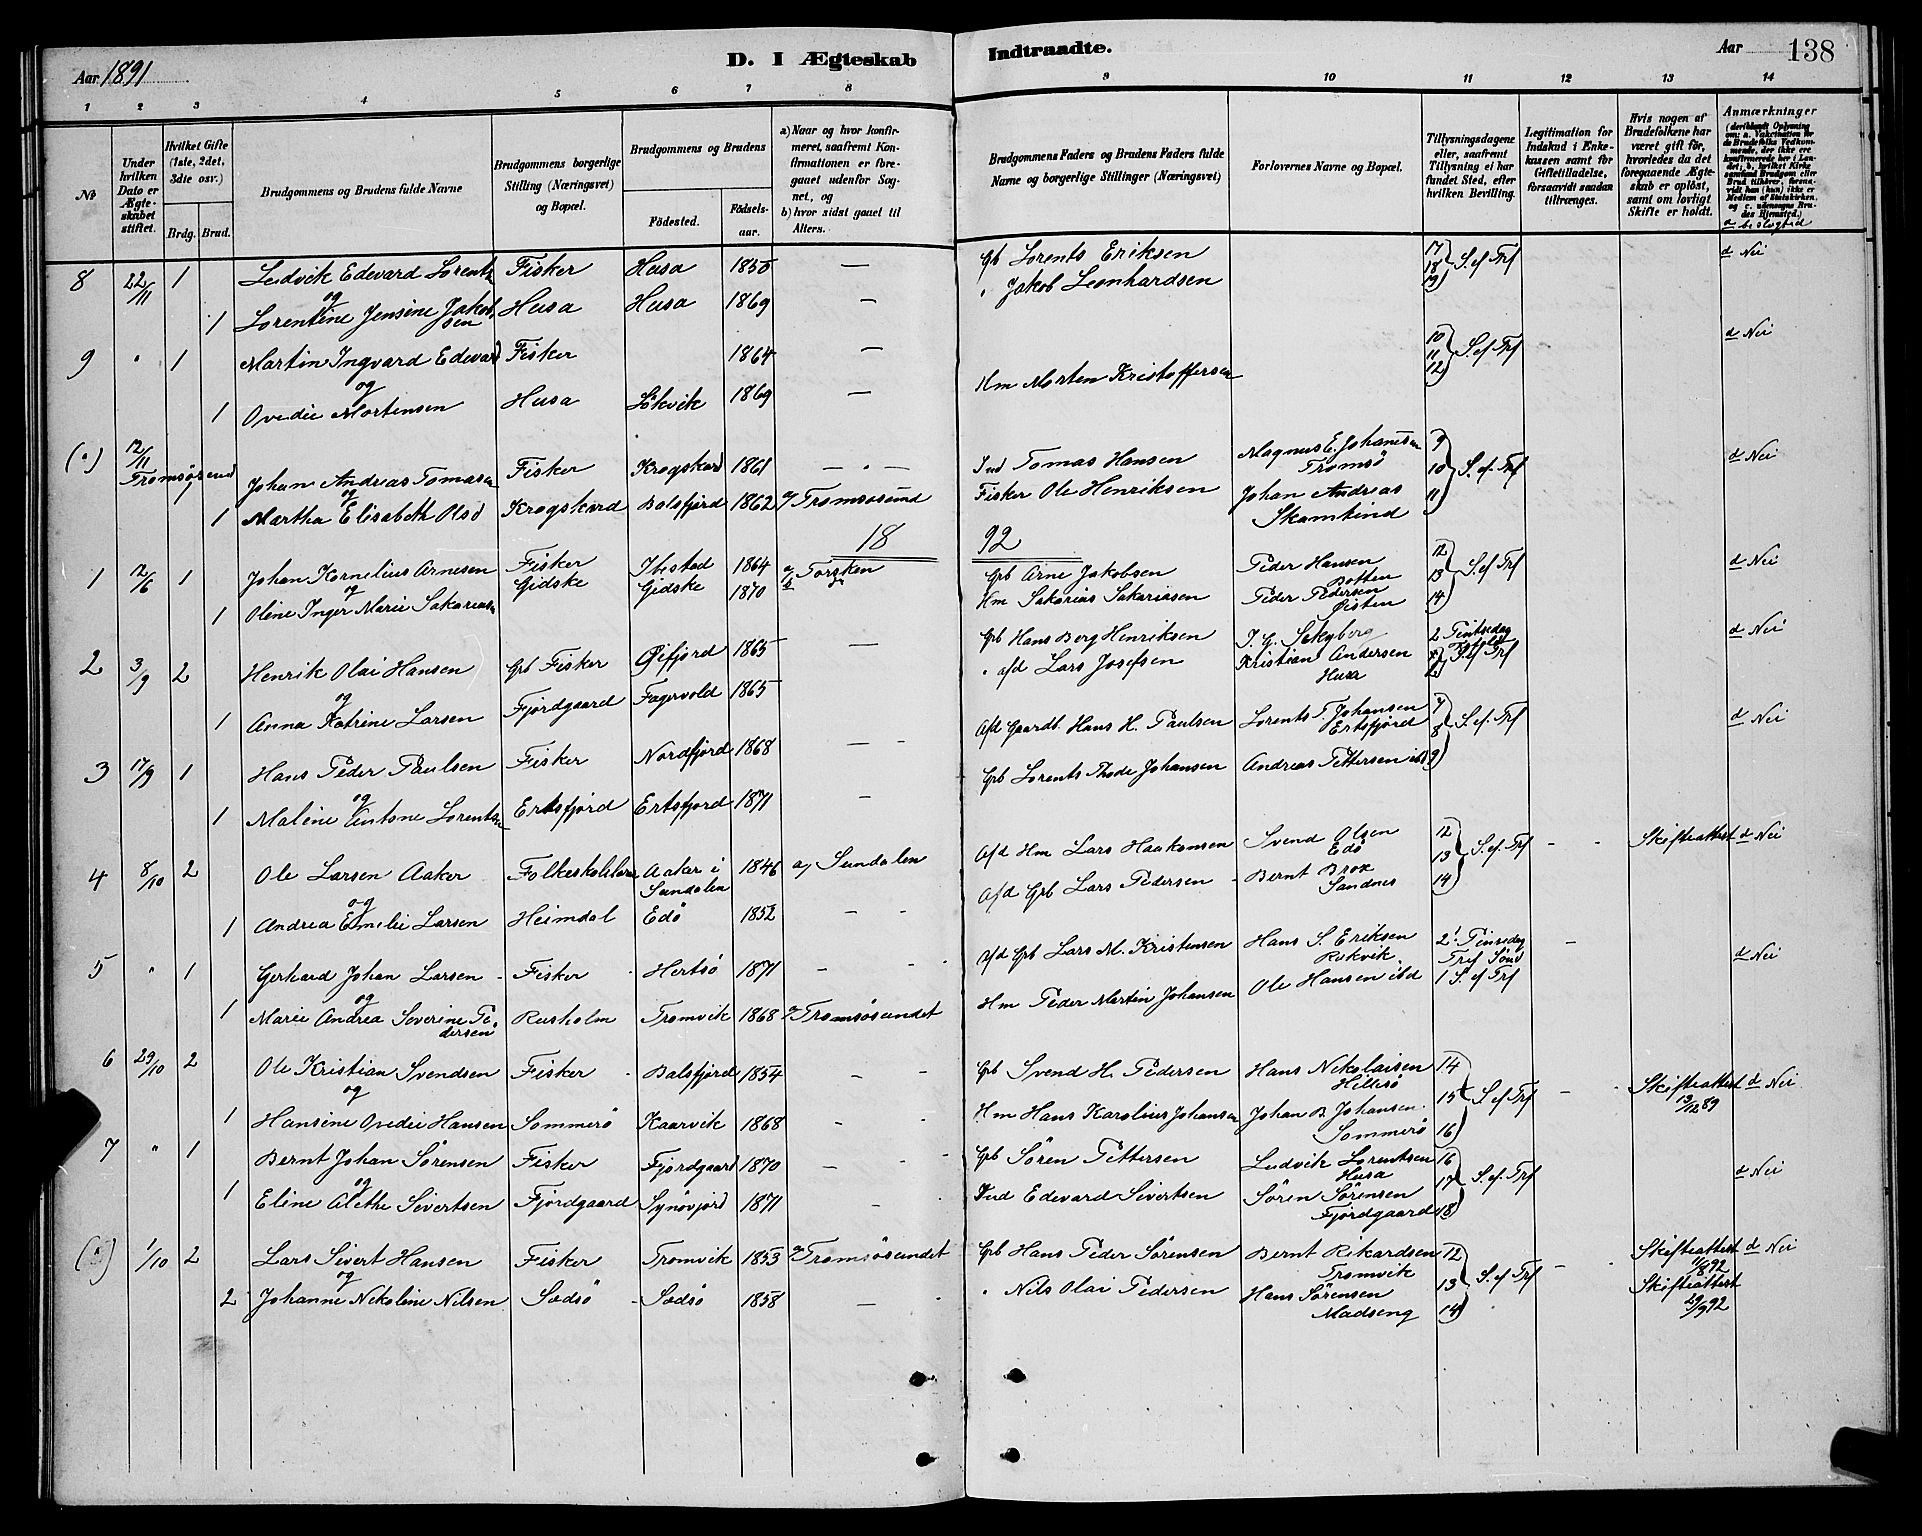 Aar 1891
D. I Ægteskab Indtraadte.
Aar 138
1 2 3 4 5 6 7 8 9 10 11 12 13 14
No
Under hvilken Dato er Ægteskabet stiftet.
Hvilket Gifte (1ste, 2det, 3die osv.)
Brdg. Brud.
Brudgommens og Brudens fulde Navne
Brudgommens borgerlige Stilling (Næringsvei) og Bopæl.
Brudgommens og Brudens
Födested. Födselsaar.
a) Naar og hvor konfirmeret, saafremt Konfirmationen er foregaaet udenfor Sognet, og
b) hvor sidst gaaet til Alters.
Brudgommens Faders og Brudens Faders fulde Navne og borgerlige Stillinger (Næringsvei)
Forlovernes Navne og Bopæl.
Tillysningsdagene eller, saafremt Tillysning ei har fundet Sted, efter hvilken Bevilling.
Legitimation for Indskud i Enkekassen samt for Giftetilladelse, forsaavidt saadan tiltrænges.
Hvis nogen af Brudefolkene har været gift för, hvorledes da det foregaaende Ægteskab er oplöst, samt om lovligt Skifte er holdt.
Anmærkninger (deriblandt Oplysning om: a. Vakcination for de Brudefolks Vedkommende, der ikke ere konfirmerede her i Landet; b. hvilket Kirkesamfund Brudgom eller Brud tilhörer, forsaavidt han (hun) ikke er Medlem af Statskirken, og c. udensogns Brudes Hjemsted.)
d beslegted
8 22/11 1 Ludvik Edevard Lorents Fisker Husa 1850 — Gb Lorents Eriksen 17 18 19 S. ef Trf d Nei
og
1 Lorentine Jensine Jakobsen Husa Husa 1869 — " Jakob Leonhardsen
9 " 1 Martin Ingvard Edevard Fisker 1864 — 10 11 12 S. ef Trf d Nei
og
1 Ovedie Mortensen Husa Lökvik 1869 — Hm Morten Kristoffersen
(") 12/11 Tromsøsund Johan Andreas Tomasen Fisker Krogskard 1861 — " — Ind Tomas Hansen Magnus E. Johannesen Tromsö 9 10 11 S. ef. Trf d Nei
og
1 Martha Elisabeth Olsd Krogskard Balsfjord 1862 a/ Tromsøsund Fisker Ole Henriksen Johan Andreas
18 92
1 12/6 1 Johan Kornelius Arnesen Fisker Ibestad 1864 a/ Torsken Grb Arne Jakobsen Peder Hansen Botten 12 13 14 S. ef Trf d Nei
og
1 Oline Inger Marie Sakarias Gidske Gidske 1870 Hm Sakarias Sakariasen Peder Pedersen Øisten
2 3/9 2 Henrik Olai Hansen Grb Fisker Øifjord 1865 — Grb Hans Berg Henriksen 2 Pintsedag d Nei
og
1 Anna Katrine Larsen Fjordgaard Fagervold 1865 " afd Lars Josefsen Kristian Andersen Husa S. ef Trf
3 17/9 1 Hans Peder Paulsen Fisker Nordfjord 1868 — Afd Gaardb. Hans H. Paulsen Lorents T. Johansen Ertsfjord 7 8 9 S. ef. Trf d Nei
og
1 Maline Antone Lorents Ertsfjord Ertsfjord 1871 — Grb Lorents Thode Johansen Andreas Pettersen ibd
4 8/10 2 Ole Larsen Aaker Folkeskolelærer Aaker i Sundalen 1846 a/ Sundalen Afd Hm Lars Haakonsen Svend Olsen Edö 12 13 14 S. ef. Trf - - Skifteattest d Nei
og
1 Andrea Emelie Larsen Heimdal Edö 1852 — Afd Grb Lars Pedersen Bernt Brox Sandnes
5 " 1 Gerhard Johan Larsen Fisker Hertsö 1871 - Afd Grb Lars M. Kristensen Hans S. Eriksen Rekvik 2! Pinsedag Trf Sönd - d Nei
og
1 Marie Andrea Severine Pedersen Rusholm Tromvik 1868 a/ Tromsøsundet Hm Peder Martin Johansen Ole Hansen ibd 1 S. ef Trf
6 29/10 2 Ole Kristian Svendsen Fisker Balsfjord 1854 - Grb Svend H. Pedersen Hans Nikolaisen Hillesö 14 15 16 S. ef Trf - - Skifteattest 13/12 89 d Nei
og
1 Hansine Ovedie Hansen Sommerö Kaarvik 1868 - Hm Hans Karolius Johansen Johan B. Johansen Sommerö
7 " 1 Bernt Johan Sörensen Fisker Fjordgaard 1870 - Grb Sören Pettersen Ludvik Lorentsen Husa 16 17 18 S. ef Trf d Nei
og
1 Eline Alethe Sivertsen Fjordgaard Synövjord 1871 - Ind Edevard Sivertsen Sören Sörensen Fjordgaard
(") 1/10 2 Lars Sivert Hansen Fisker Tromvik 1853 a/ Tromsøsundet Grb Hans Peder Sörensen Bernt Rikardsen Tromvik 12 13 14 S. ef Trf - - Skifteattest 11/8 92 d Nei
og
2 Johanne Nikoline Nilsen Sodsö Sodsö 1858 — " Nils Olai Pedersen Hans Sörensen Madseng Skifteattest 29/9 92